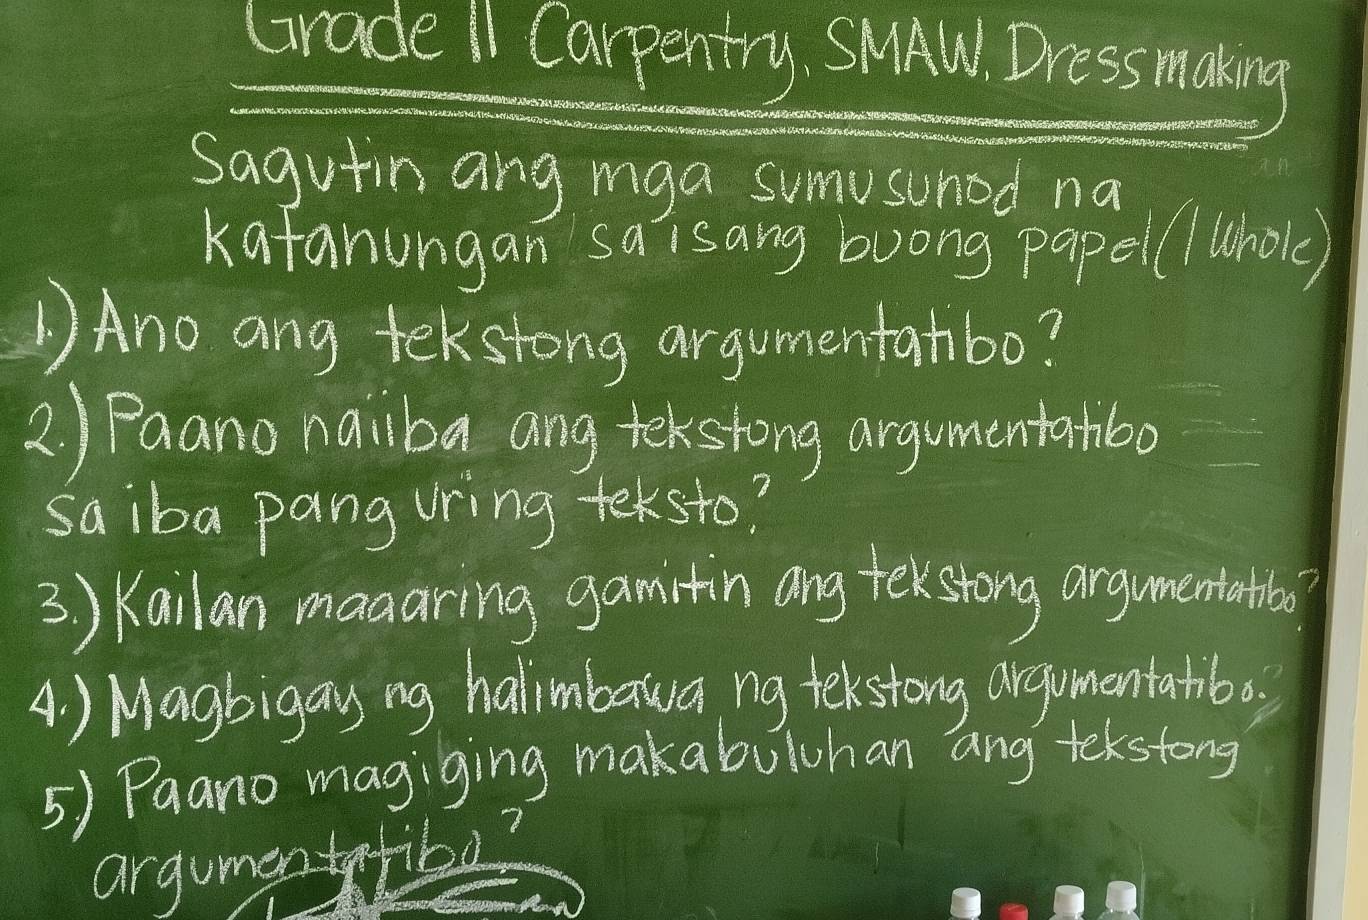 Grade 11 Carpentry, SMAW, Dressmaking
Sagutin ang mga sumusunod na
katanungan sa isang buong papel (1 whole)
1.) Ano ang tekstong argumentatibo?
2.) Paano naiiba ang tekstong argumentatibo
sa iba pang uring teksto?
3.) Kailan maaaring gamitin ang tekstong argumentatibo?
4.) Magbigay ng halimbawa ng tekstong argumentatibo.
5.) Paano magiging makabuluhan ang tekstong
argumentatibo?